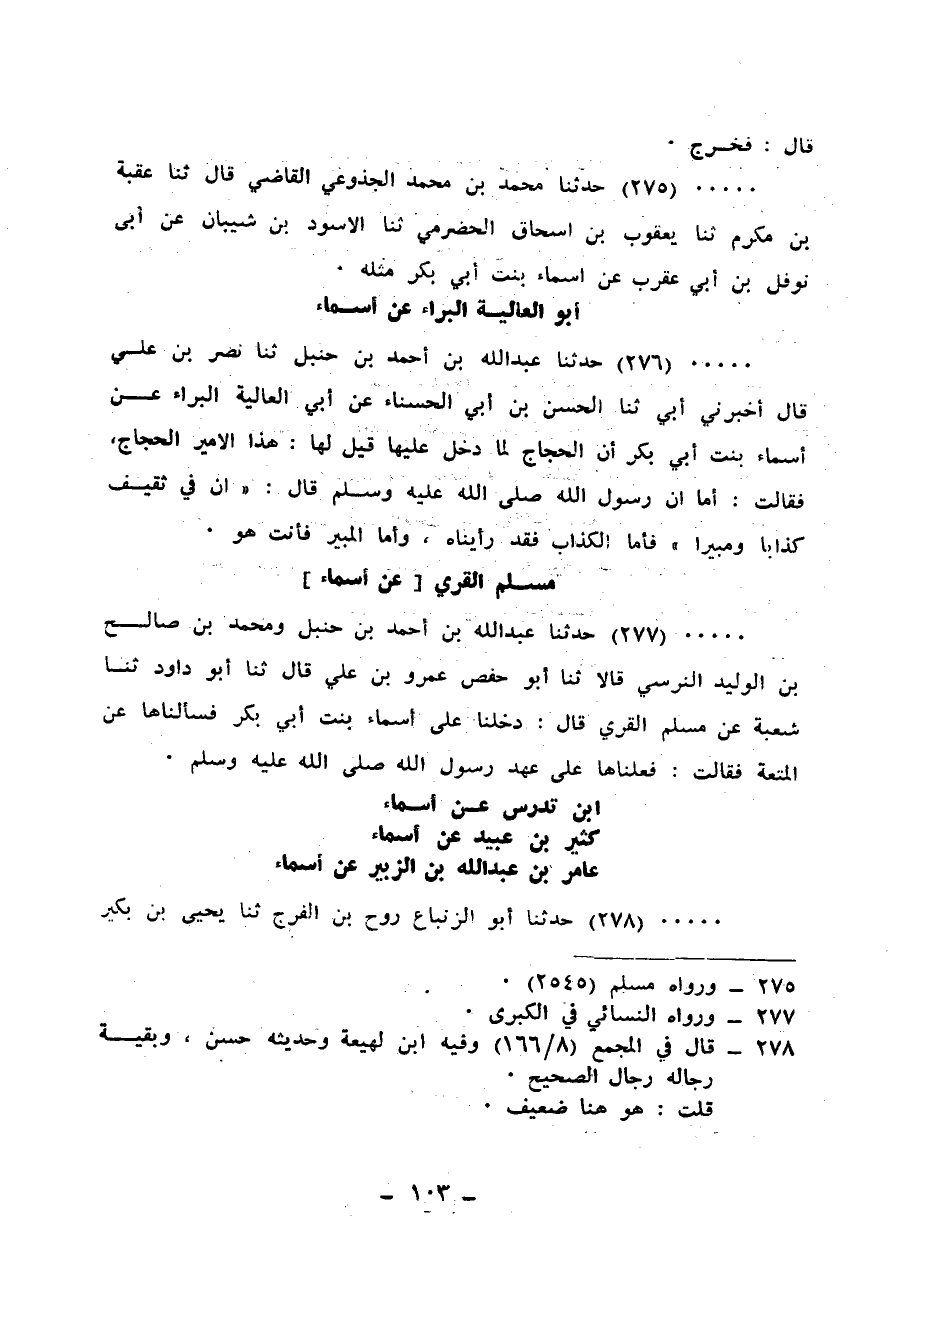 قال : فخـرج ٠
٠٠٠٠٠ (٢٧٥) حدثنا محمد بن محمد الجذوعي القاضي قال ثنا عقبة
بن مكرم ثنا يعقوب بن اسحاق الحضرمي ثنا الاسود بن شيبان عن أبى
نوفل بن أبي عقرب عن اسماء بنت أبي بكر مثله ٠
أبو العاليـة البراء عن أسـماء
٠٠٠٠٠ (٢٧٦) حدثنا عبدالله بن أحمد بن حنبل ثنا نصر بن علـي
قال أخبرني أبي ثنا الحسن بن أبي الحسناء عن أبي العالية البراء عــن
أسماء بنت أبي بكر أن الحجاج لما دخل عليها قيل لها : هذا الامير الحجاج،
فقالت : أما ان رسول الله صلى الله عليه وسـلم قال : « ان في ثقيـف
كذابا ومبيرا » فأما الكذاب فقد رأيناه ، وأما المبير فأنت هو ٠
مسـلم القري [ عن أسماء ]
٠٠٠٠٠ (٢٧٧) حدثنا عبدالله بن أحمد بن حنبل ومحمد بن صالــح
بن الوليد النرسي قالا ثنا أبو حفص عمرو بن علي قال ثنا أبو داود ثنـا
شعبة عن مسلم القري قال : دخلنا على أسماء بنت أبي بكر فسألناها عن
المتعة فقالت : فعلناها على عهد رسول الله صلى الله عليه وسلم ٠
ابن تدرس عـن أسـماء
كثير بن عبيد عن أسماء
عامر بن عبدالله بن الزبير عن أسماء
٠٠٠٠٠ (٢٧٨) حدثنا أبو الزنباع روح بن الفرج ثنا يحيى بن بكير
٢٧٥ ـ ورواه مسلم (٢٥٤٥) ٠
٢٧٧ ـ ورواه النسائي في الكبرى ٠
٢٧٨ ـ قال في المجمع (١٦٦/٨) وفيه ابن لهيعة وحديثه حسن ، وبقيــة
رجاله رجال الصحيح ٠
قلت : هو هنا ضعيف ٠
ـ ١٠٣ ـ